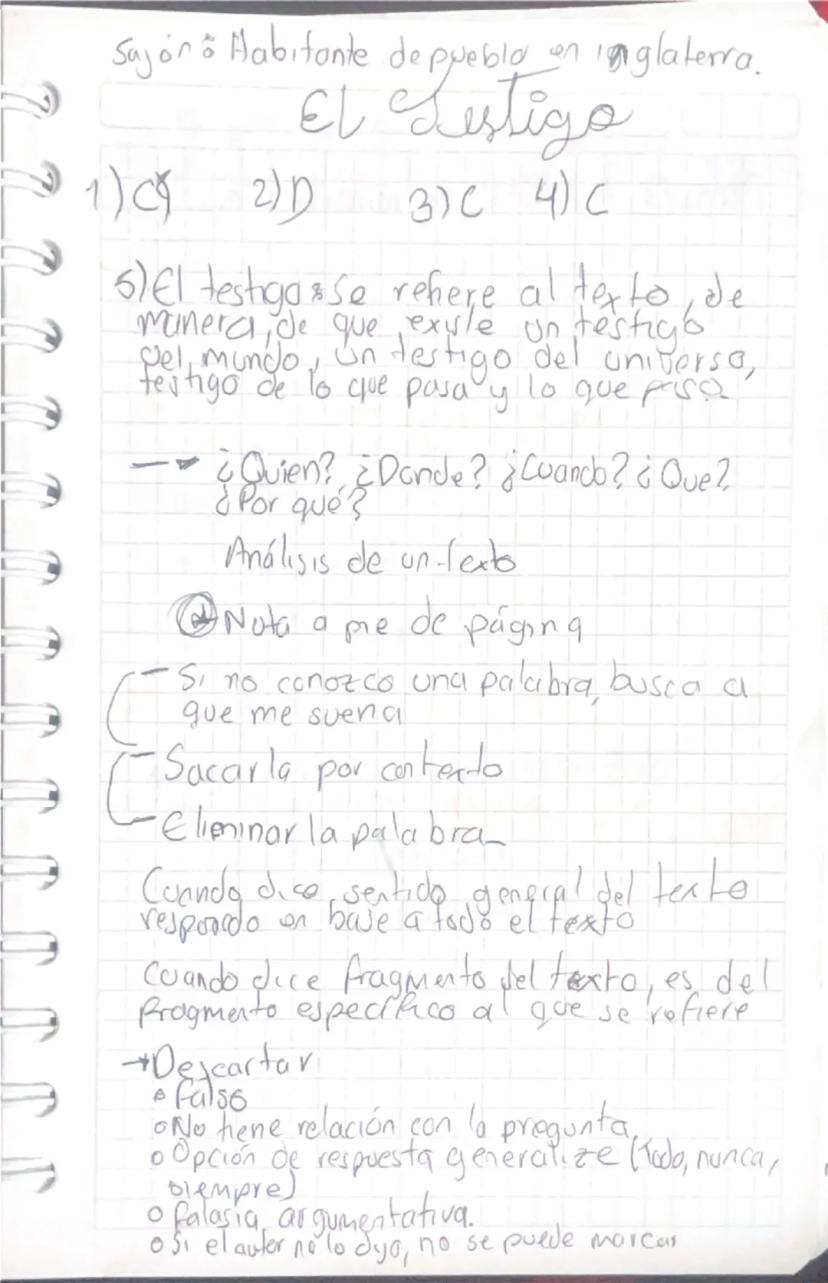 Sajón: Habitante de pueblo en inglaterra.
El Testigo
1) C 2) D 3) C 4) C
5) El testigo: Se refiere al texto, de
manera, de que existe un testigo
del mundo, un testigo del universo,
testigo de lo que pasa y lo que paso
¿Quien? ¿Donde? ¿Cuando? ¿Que?
¿Por qué?
Análisis de un texto
Nota a pie de página
- Si no conozco una palabra, busca a
que me suena
- Sacarla por contexto
- Eliminar la palabra
Cuando dice sentido general del texto
respondo en base a todo el texto
Cuando dice fragmento del texto, es del
fragmento específico al que se refiere
→ Descartar
• falso
o No tiene relación con la pregunta
o Opción de respuesta generalize (Todo, nunca,
siempre)
o falasia argumentativa.
o Si el autor no lo dijo, no se puede marcar